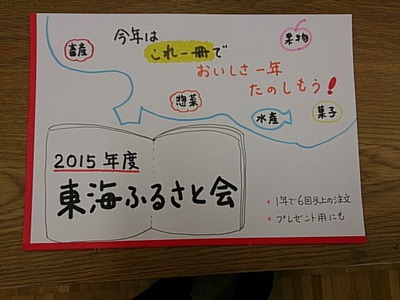 今年は
これ一冊で
おいしさ一年
たのしもう!
畜産
果物
惣菜
水産
菓子
2015年度
東海ふるさと会
・1年で6回以上の注文
・プレゼント用にも